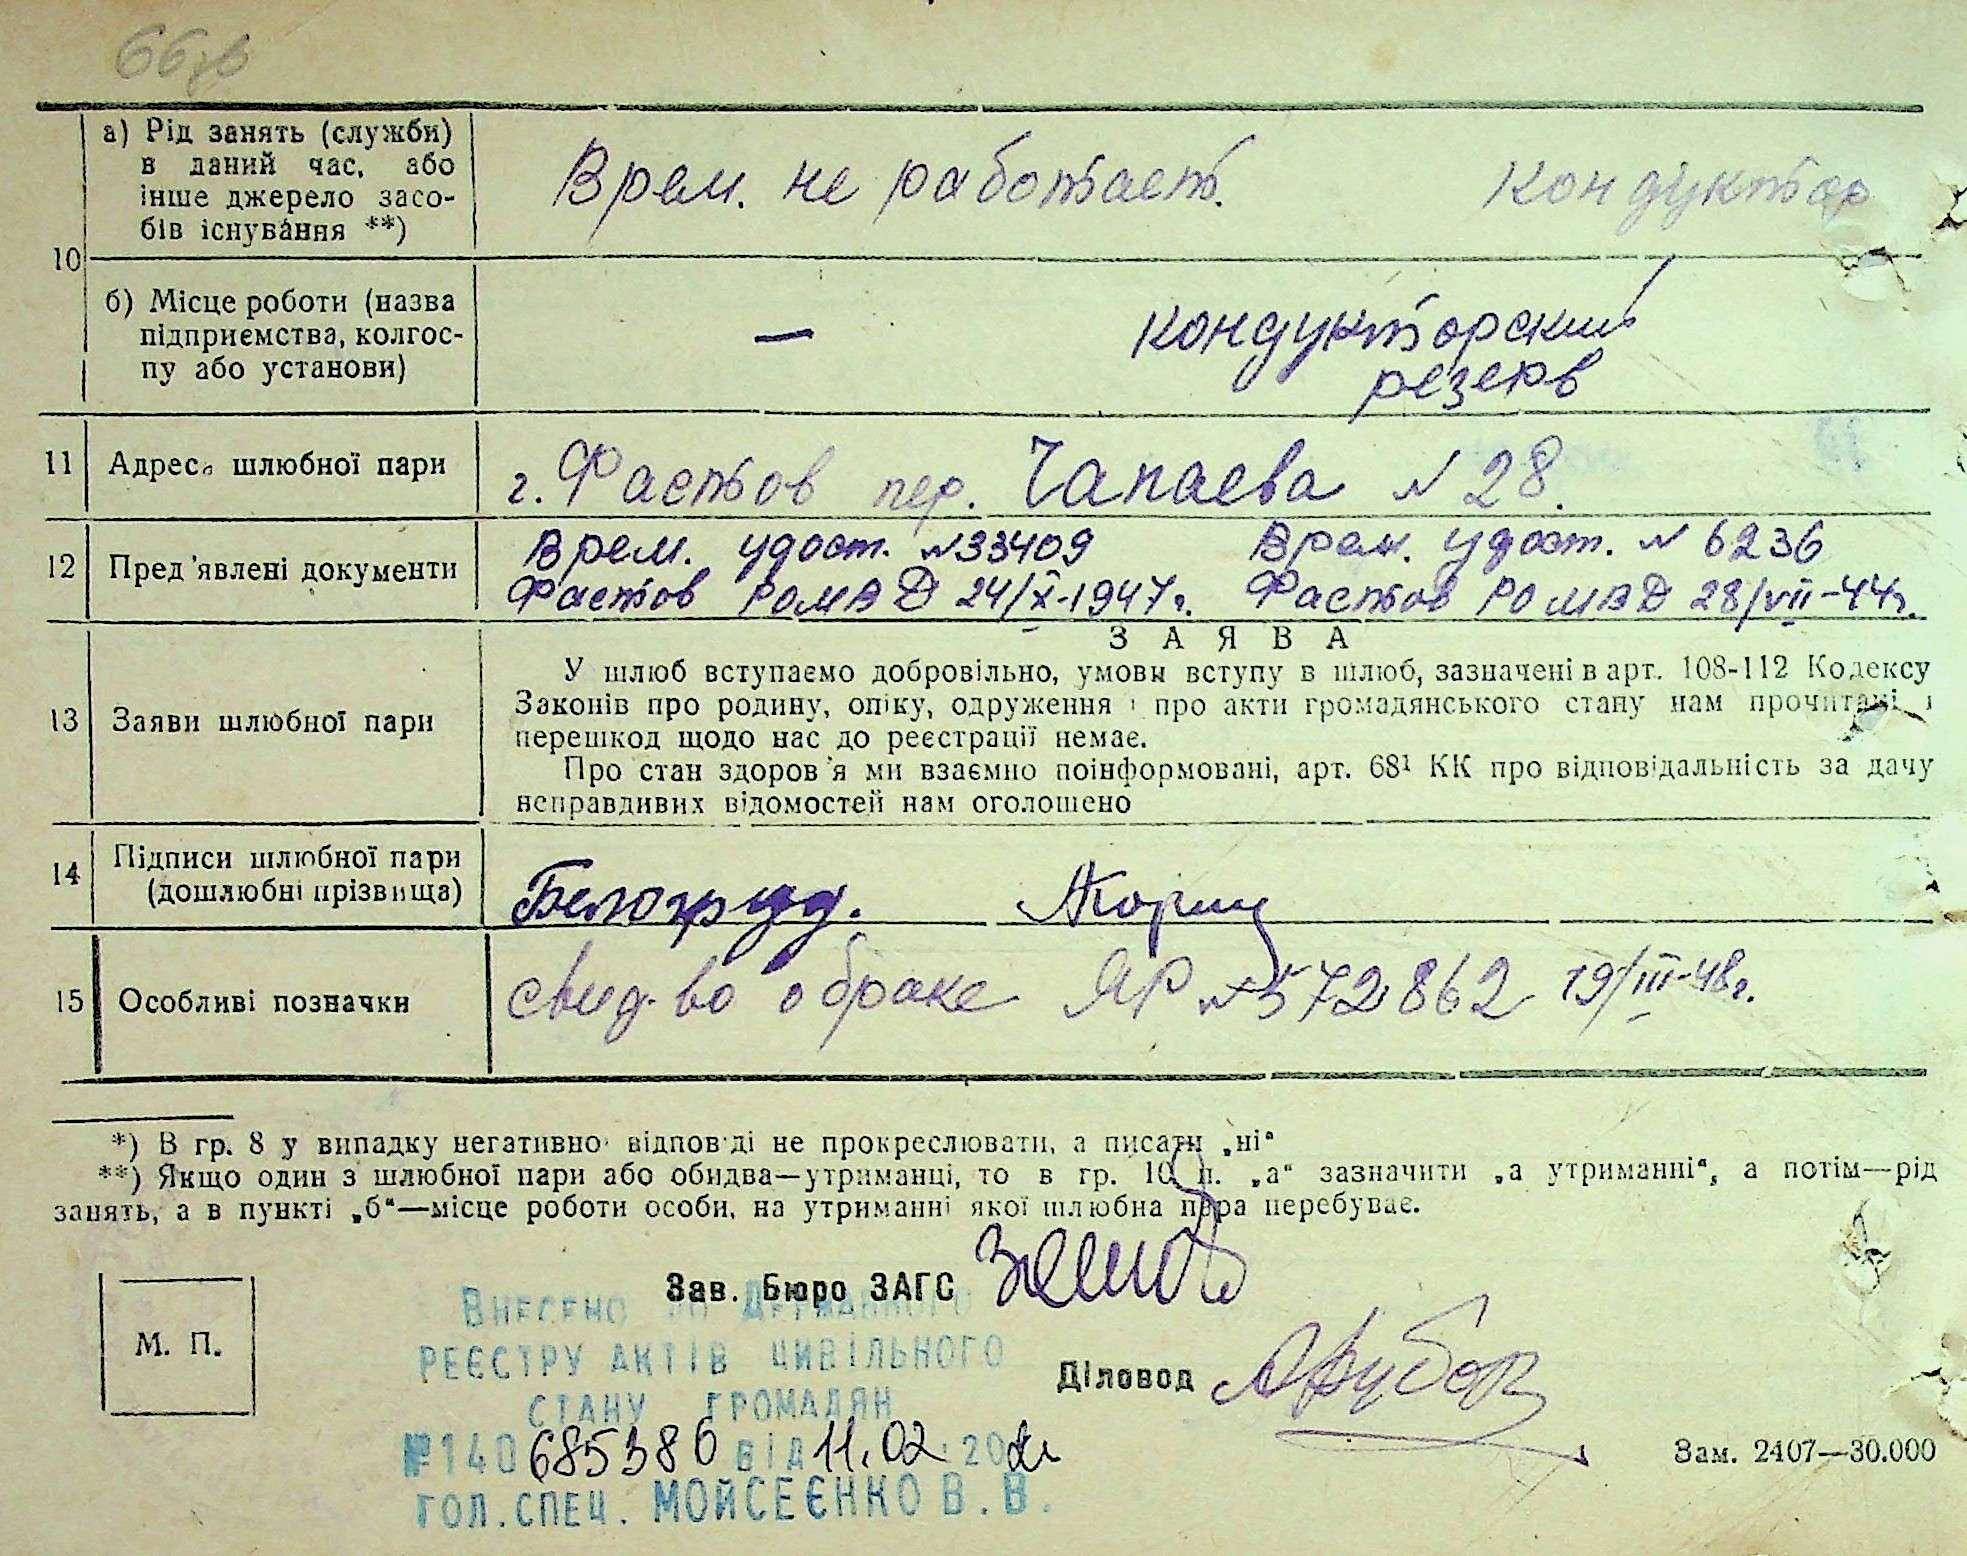 66зв
а) Рід занять (служби)
в даний час, або
інше джерело засо-
бів існування **)
Врем. не работает.
кондуктор
10
б) Місце роботи (назва
підприємства, колгос-
пу або установи)
—
кондукторский
резерв
11
Адреса шлюбної пари
г. Фастов пер. Чапаева № 28.
12
Пред'явлені документи
Врем. удост. №33409
Фастов РОМВД 24/X-1947г.
Врем. удост. № 6236
Фастов РОМВД 28/VII-44г.
13
Заяви шлюбної пари
ЗАЯВА
У шлюб вступаємо добровільно, умови вступу в шлюб, зазначені в арт. 108-112 Кодексу
Законів про родину, опіку, одруження і про акти громадянського стану нам прочитані і
перешкод щодо нас до реєстрації немає.
Про стан здоров'я ми взаємно поінформовані, арт. 68¹ КК про відповідальність за дачу
неправдивих відомостей нам оголошено
14
Підписи шлюбної пари
(дошлюбні прізвища)
15
Особливі позначки
свид-во о браке ЯР №572862 19/III-48г.
*) В гр. 8 у випадку негативно відповіді не прокреслювати, а писати „ні“
**) Якщо один з шлюбної пари або обидва—утриманці, то в гр. 10 п. „а“ зазначити „а утриманні“, а потім—рід
занять, а в пункті „б“—місце роботи особи, на утриманні якої шлюбна пара перебуває.
Зав. Бюро ЗАГС
М. П.
Діловод
Внесено до Державного
реєстру актів цивільного
стану громадян
№140685386 від 11.02.2021
гол.спец. Мойсеєнко В.В.
Зам. 2407—30.000